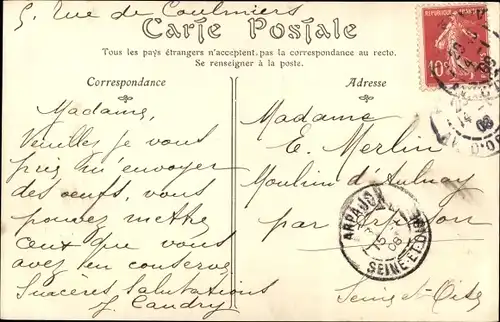 5, rue de Coulmiers
Carte Postale
Tous les pays étrangers n'acceptent pas la correspondance au recto.
Se renseigner à la poste.
Correspondance
Adresse
REPUBLIQUE FRANÇAISE
10c
Madame,
Veuillez je vous
prie m'envoyer
des oeufs, vous
pouvez mettre
ceux que vous
avez en conserve
Sincères Salutations
J. Candry
Madame
E. Merlin
Moulin d'Aulnay
par Arpajon
Seine et Oise
ARPAJON
15
08
SEINE-ET-OISE
08